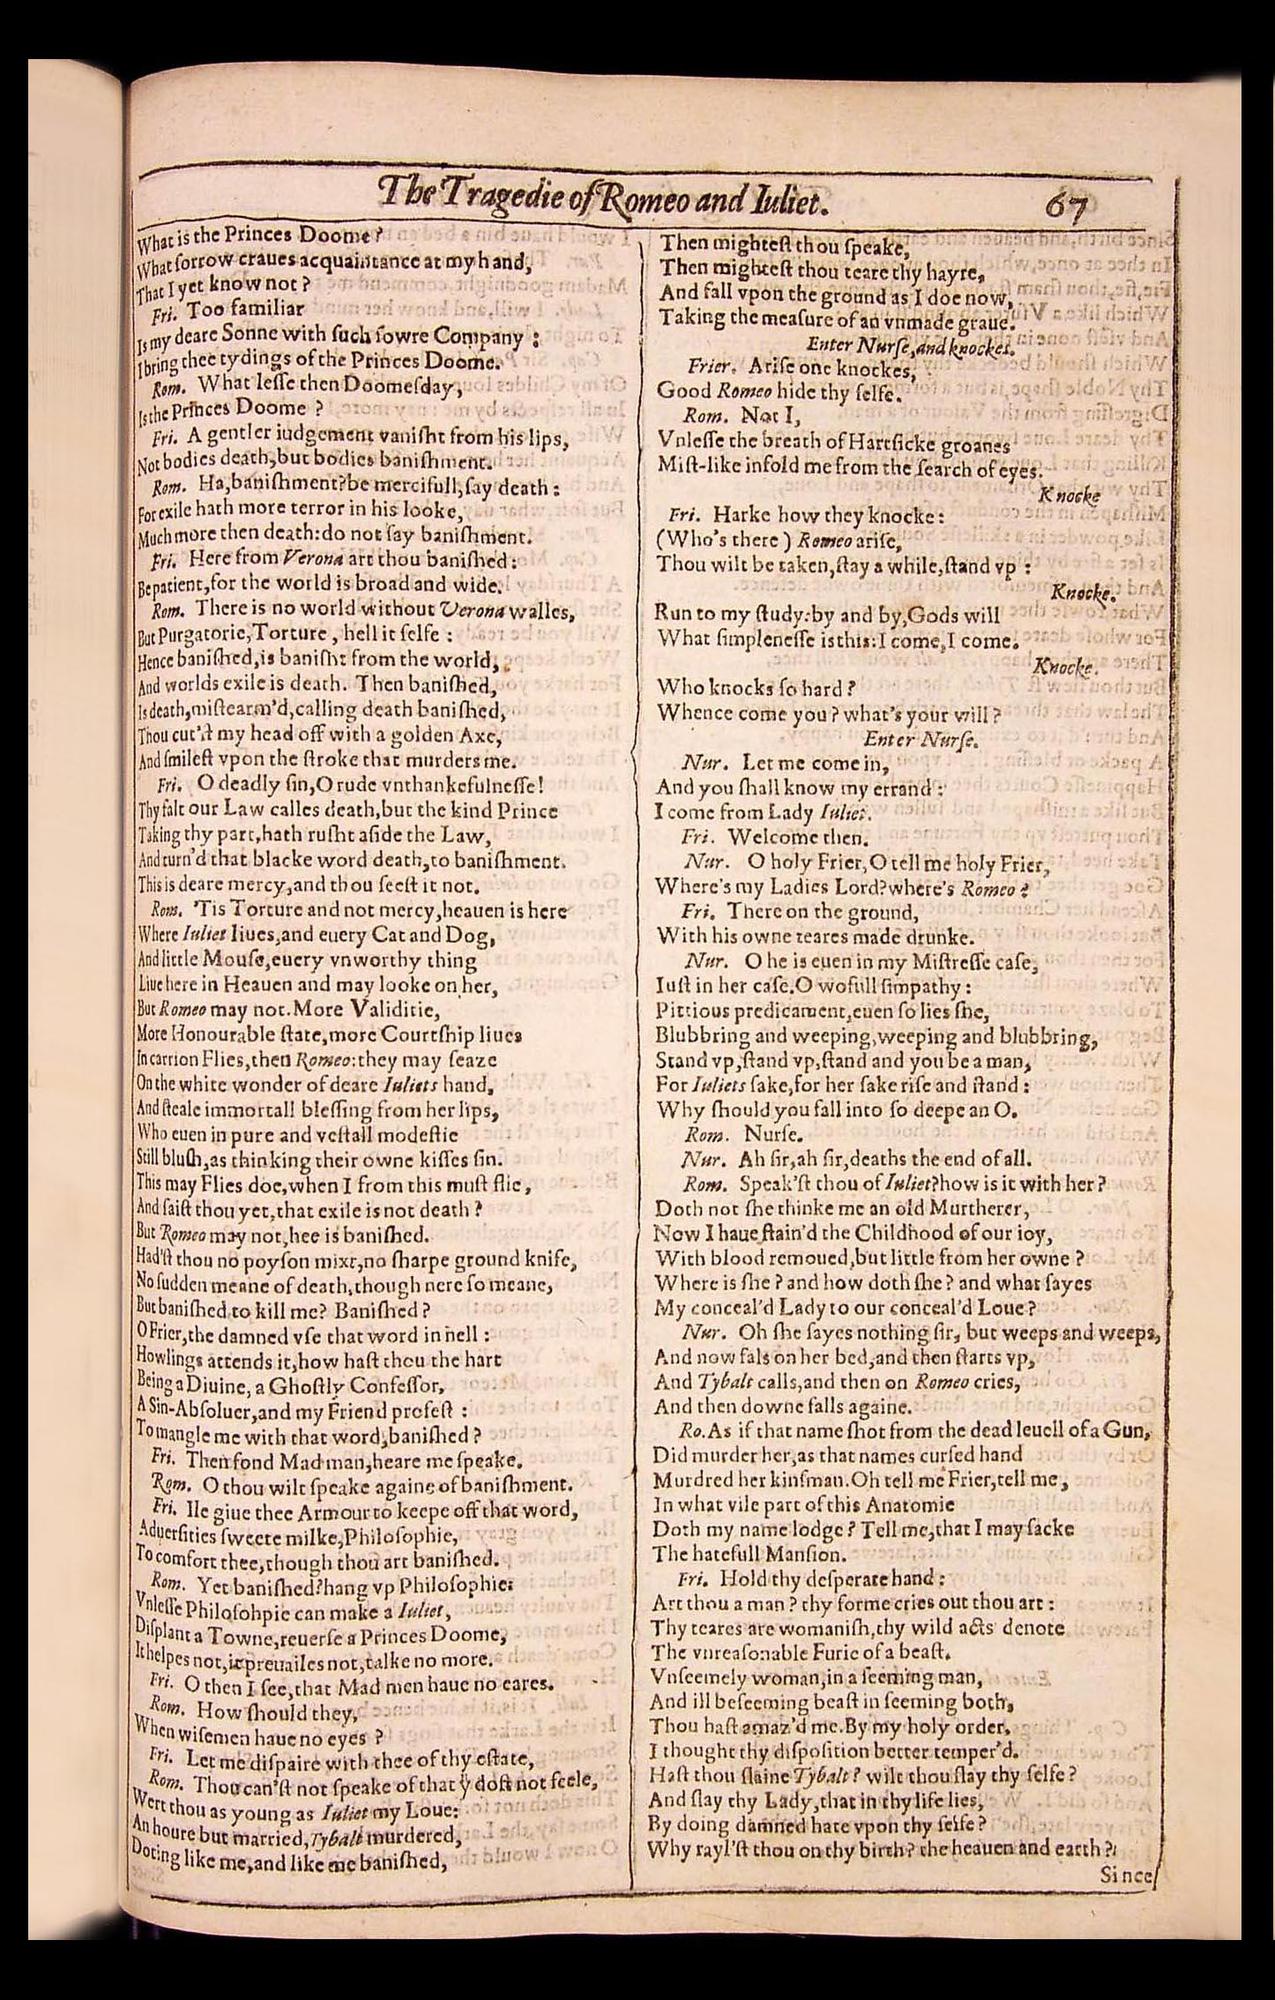 The Tragedie of Romeo and Iuliet.
67
What is the Princes Doome?
What sorrow craues acquaintance at my hand,
That I yet know not?
Fri. Too familiar
Is my deare Sonne with such sowre Company:
I bring thee tydings of the Princes Doome.
Rom. What lesse then Doomesday,
Is the Princes Doome?
Fri. A gentler iudgement vanisht from his lips,
Not bodies death, but bodies banishment.
Rom. Ha, banishment? be mercifull, say death:
For exile hath more terror in his looke,
Much more then death: do not say banishment.
Fri. Here from Verona art thou banished:
Be patient, for the world is broad and wide.
Rom. There is no world without Verona walles,
But Purgatorie, Torture, hell it selfe:
Hence banished, is banisht from the world,
And worlds exile is death. Then banished,
Is death, mistearm'd, calling death banished,
Thou cut'st my head off with a golden Axe,
And smilest vpon the stroke that murders me.
Fri. O deadly sin, O rude vnthankefulnesse!
Thy falt our Law calles death, but the kind Prince
Taking thy part, hath rusht aside the Law,
And turn'd that blacke word death, to banishment.
This is deare mercy, and thou seest it not.
Rom. 'Tis Torture and not mercy, heauen is here
Where Iuliet liues, and euery Cat and Dog,
And little Mouse, euery vnworthy thing
Liue here in Heauen and may looke on her,
But Romeo may not. More Validitie,
More Honourable state, more Courtship liues
In carrion Flies, then Romeo: they may seaze
On the white wonder of deare Iuliets hand,
And steale immortall blessing from her lips,
Who euen in pure and vestall modestie
Still blush, as thinking their owne kisses sin.
This may Flies doe, when I from this must flie,
And saist thou yet, that exile is not death?
But Romeo may not, hee is banished.
Had'st thou no poyson mixt, no sharpe ground knife,
No sudden meane of death, though nere so meane,
But banished to kill me? Banished?
O Frier, the damned vse that word in hell:
Howlings attends it, how hast thou the hart
Being a Diuine, a Ghostly Confessor,
A Sin-Absoluer, and my Friend profest:
To mangle me with that word, banished?
Fri. Then fond Mad man, heare me speake.
Rom. O thou wilt speake againe of banishment.
Fri. Ile giue thee Armour to keepe off that word,
Aduersities sweete milke, Philosophie,
To comfort thee, though thou art banished.
Rom. Yet banished? hang vp Philosophie:
Vnlesse Philosohpie can make a Iuliet,
Displant a Towne, reuerse a Princes Doome,
It helpes not, it preuailes not, talke no more.
Fri. O then I see, that Mad men haue no eares.
Rom. How should they,
When wisemen haue no eyes?
Fri. Let me dispaire with thee of thy estate,
Rom. Thou can'st not speake of that ẙ dost not feele,
Wert thou as young as Iuliet my Loue:
An houre but married, Tybalt murdered,
Doting like me, and like me banished,
Then mightest thou speake,
Then mightest thou teare thy hayre,
And fall vpon the ground as I doe now,
Taking the measure of an vnmade graue.
Enter Nurse, and knockes.
Frier. Arise one knockes,
Good Romeo hide thy selfe.
Rom. Not I,
Vnlesse the breath of Hartsicke groanes
Mist-like infold me from the search of eyes.
Knocke
Fri. Harke how they knocke:
(Who's there) Romeo arise,
Thou wilt be taken, stay a while, stand vp:
Knocke.
Run to my study: by and by, Gods will
What simplenesse is this: I come, I come.
Knocke.
Who knocks so hard?
Whence come you? what's your will?
Enter Nurse.
Nur. Let me come in,
And you shall know my errand:
I come from Lady Iuliet.
Fri. Welcome then.
Nur. O holy Frier, O tell me holy Frier,
Where's my Ladies Lord? where's Romeo?
Fri. There on the ground,
With his owne teares made drunke.
Nur. O he is euen in my Mistresse case,
Iust in her case. O wofull simpathy:
Pittious predicament, euen so lies she,
Blubbring and weeping, weeping and blubbring,
Stand vp, stand vp, stand and you be a man,
For Iuliets sake, for her sake rise and stand:
Why should you fall into so deepe an O.
Rom. Nurse.
Nur. Ah sir, ah sir, deaths the end of all.
Rom. Speak'st thou of Iuliet? how is it with her?
Doth not she thinke me an old Murtherer,
Now I haue stain'd the Childhood of our ioy,
With blood remoued, but little from her owne?
Where is she? and how doth she? and what sayes
My conceal'd Lady to our conceal'd Loue?
Nur. Oh she sayes nothing sir, but weeps and weeps,
And now fals on her bed, and then starts vp,
And Tybalt calls, and then on Romeo cries,
And then downe falls againe.
Ro. As if that name shot from the dead leuell of a Gun,
Did murder her, as that names cursed hand
Murdred her kinsman. Oh tell me Frier, tell me,
In what vile part of this Anatomie
Doth my name lodge? Tell me, that I may sacke
The hatefull Mansion.
Fri. Hold thy desperate hand:
Art thou a man? thy forme cries out thou art:
Thy teares are womanish, thy wild acts denote
The vnreasonable Furie of a beast.
Vnseemely woman, in a seeming man,
And ill beseeming beast in seeming both,
Thou hast amaz'd me. By my holy order,
I thought thy disposition better temper'd.
Hast thou slaine Tybalt? wilt thou slay thy selfe?
And slay thy Lady, that in thy life lies,
By doing damned hate vpon thy selfe?
Why rayl'st thou on thy birth? the heauen and earth?
Since